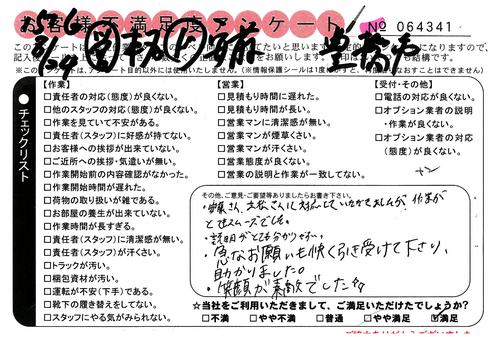 お客様不満足度アンケート
No 064341
豊橋市
チェックリスト
【作業】
□責任者の対応(態度)が良くない。
□他のスタッフの対応(態度)が良くない。
□作業を見ていて不安がある。
□責任者(スタッフ)に好感が持てない。
□お客様への挨拶が出来ていない。
□ご近所への挨拶・気遣いが無い。
□作業開始前の内容確認がなかった。
□作業開始時間が遅れた。
□荷物の取り扱いが雑である。
□お部屋の養生が出来ていない。
□作業時間が長すぎる。
□責任者(スタッフ)に清潔感が無い。
□責任者(スタッフ)が汗くさい。
□トラックが汚い。
□梱包資材が汚い。
□運転が不安(下手)である。
□靴下の履き替えをしてない。
□スタッフにやる気がみられない。
【営業】
□見積もり時間に遅れた。
□見積もり時間が長い。
□営業マンに清潔感が無い。
□営業マンが煙草くさい。
□営業マンが汗くさい。
□営業態度が良くない。
□営業の説明と作業が一致してない。
【受付・その他】
□電話の対応が良くない。
□オプション業者の説明
・作業が良くない。
□オプション業者の対応
(態度)が良くない。
その他、ご意見・ご要望等ありましたらお書き下さい。
とてもスムーズでした。
・説明がとても分かりやすい。
・急なお願いも快く引き受けて下さり、
助かりました。
・笑顔が素敵でした☆
☆当社をご利用いただきまして、ご満足いただけたでしょうか?
□不満 □やや不満 □普通 □やや満足 ☑満足